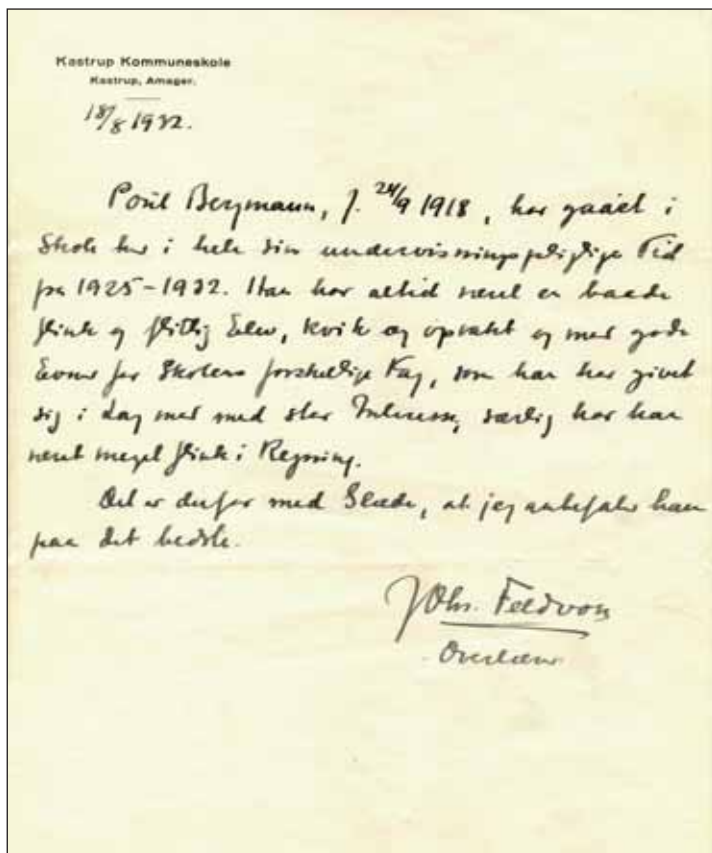 Kastrup Kommuneskole
Kastrup, Amager.
18/8 1932.
Poul Bergmann, f. 24/9 1918, har gaaet i
Skole her i hele sin undervisningspligtige Tid
fra 1925-1932. Han har altid været en baade
flink og flittig Elev, kvik og opvakt og med gode
Evner for Skolens forskellige Fag, som han har givet
sig i Lag med med stor Interesse, særlig har han
været meget flink i Regning.
Det er derfor med Glæde, at jeg anbefaler ham
paa det bedste.
Overlærer